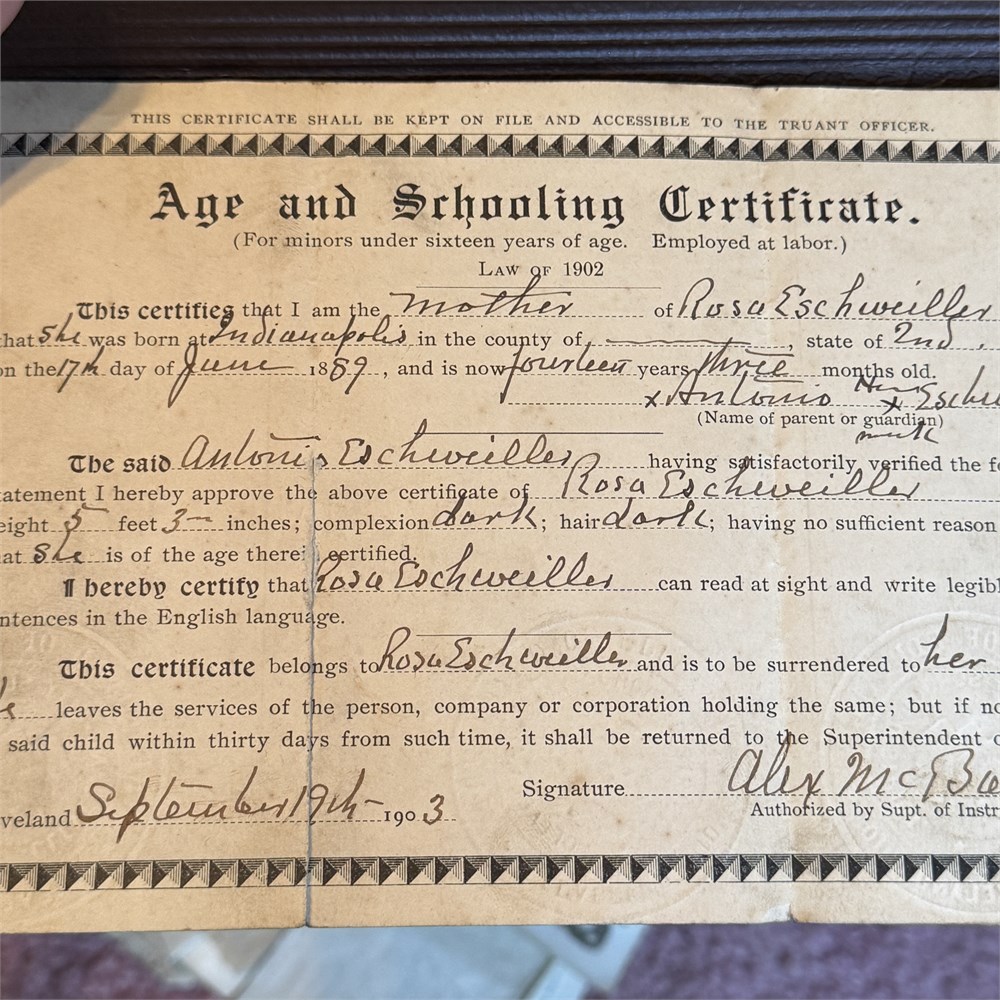 THIS CERTIFICATE SHALL BE KEPT ON FILE AND ACCESSIBLE TO THE TRUANT OFFICER.
Age and Schooling Certificate.
(For minors under sixteen years of age. Employed at labor.)
LAW OF 1902
This certifies that I am the mother of Rosa Eschweiller
that she was born at Indianapolis in the county of, state of Ind.
on the 17th day of June 1889, and is now fourteen years three months old.
x Antonio Her x
(Name of parent or guardian)
mark
The said Antonio Eschweiller having satisfactorily verified the
statement I hereby approve the above certificate of Rosa Eschweiller
eight 5 feet 3 inches; complexion dark; hair dark; having no sufficient reason
at She is of the age therei certified.
I hereby certify that Rosa Eschweiller can read at sight and write legibl
ntences in the English language.
This certificate belongs to Rosa Eschweiller and is to be surrendered to her
leaves the services of the person, company or corporation holding the same; but if no
said child within thirty days from such time, it shall be returned to the Superintendent
Signature Alex McBa
veland September 19th 1903
Authorized by Supt. of Instr